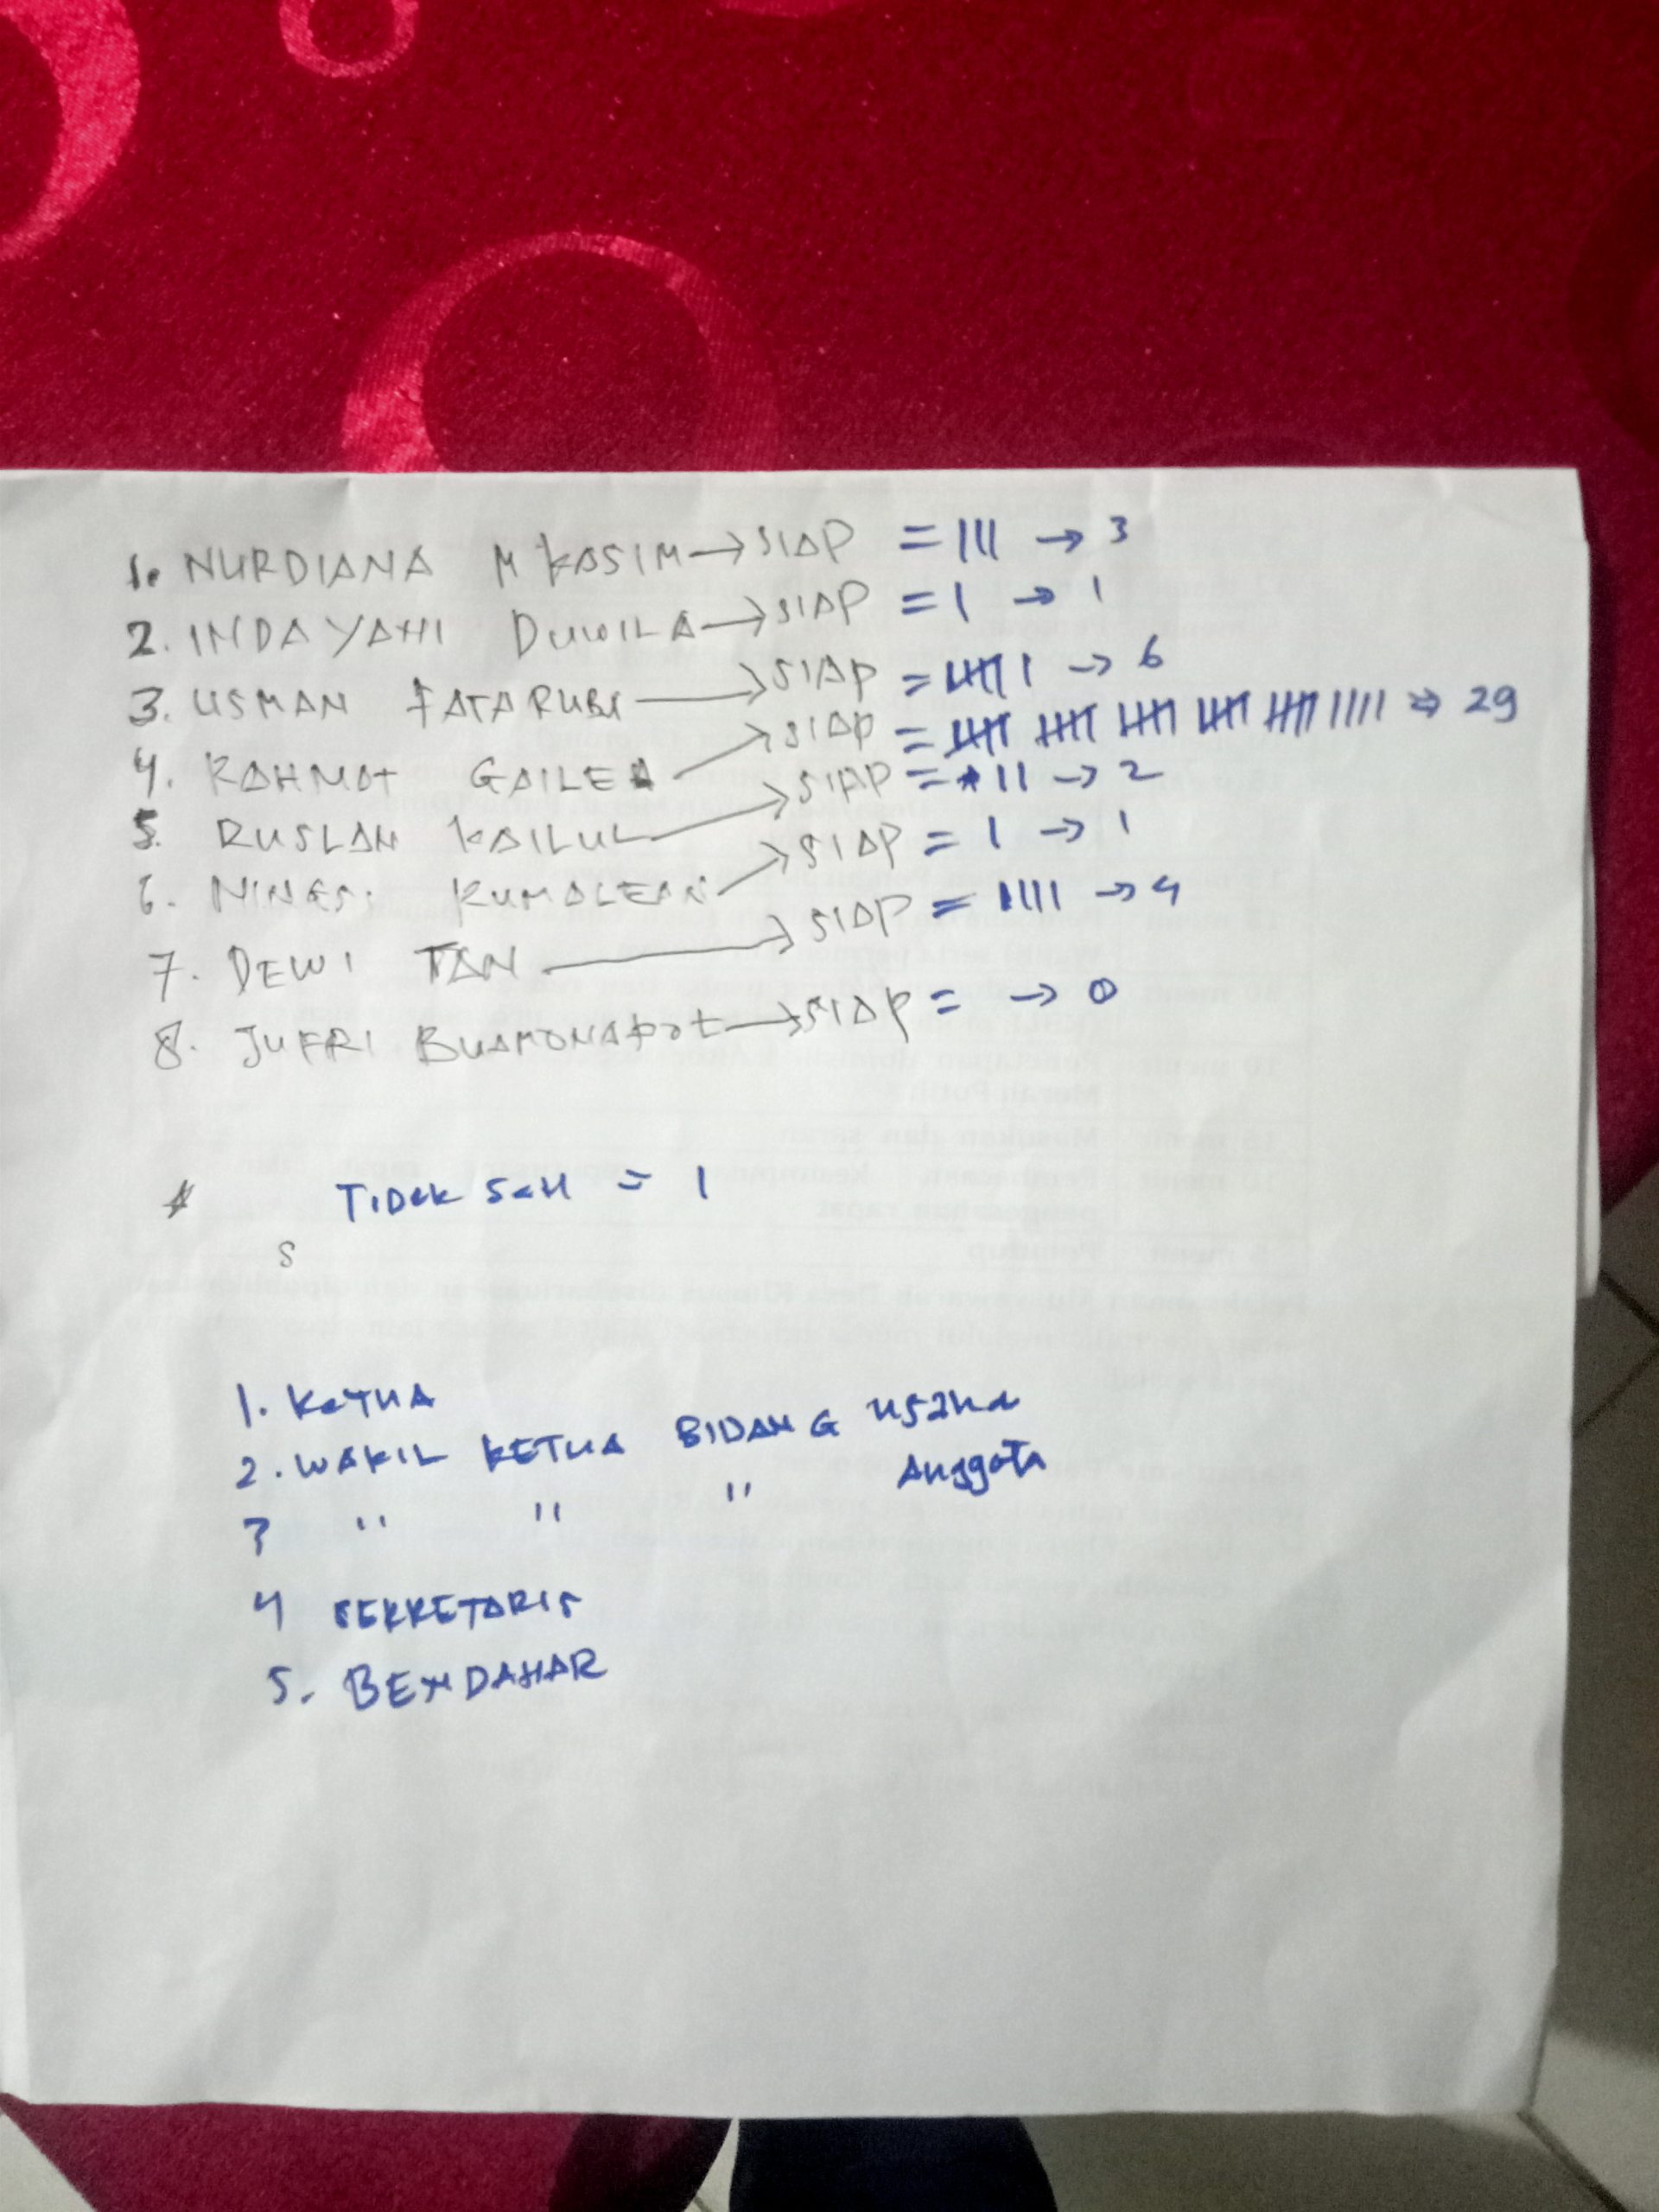 1. NURDIANA M KASIM → SIAP = III → 3
2. INDAYANI DUWILA → SIAP = I → 1
3. USMAN FATARUBI → SIAP = IIII I → 6
4. RAHMAT GAILEA → SIAP = IIII IIII IIII IIII IIII IIII → 29
5. RUSLAN KAILUL → SIAP = II → 2
6. NINGSI → SIAP = I → 1
7. DEWI TAN → SIAP = IIII → 4
8. JUFRI → SIAP = → 0
TIDAK SAH = 1
S
1. KETUA
2. WAKIL KETUA BIDANG USAHA
3 " " " Anggota
4 SEKRETARIS
5. BENDAHAR